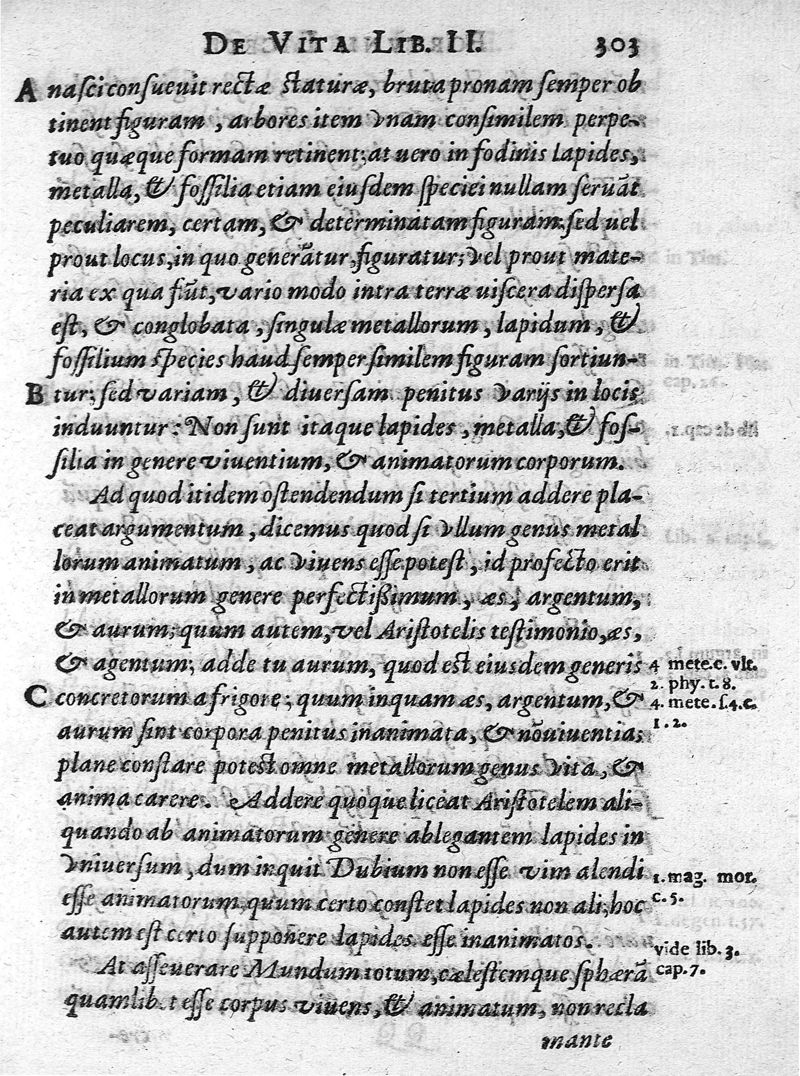 DE VITA LIB. II. 303
A nasci consueuit rectæ staturæ, bruta pronam semper ob
tinent figuram, arbores item vnam consimilem perpe-
tuo quæque formam retinent; at uero in fodinis lapides,
metalla, & fossilia etiam eiusdem speciei nullam seruãt
peculiarem, certam, & determinatam figuram: sed uel
prout locus, in quo generãtur, figuratur; vel prout mate-
ria ex qua fiũt, vario modo intra terræ uiscera dispersa
est, & conglobata, singulæ metallorum, lapidum, &
fossilium species haud semper similem figuram sortiun-
B tur; sed variam, & diuersam penitus varijs in locis
induuntur: Non sunt itaque lapides, metalla, & fos-
silia in genere viuentium, & animatorum corporum.
Ad quod itidem ostendendum si tertium addere pla-
ceat argumentum, dicemus quod si vllum genus metal
lorum animatum, ac viuens esse potest, id profecto erit
in metallorum genere perfectißimum, æs, argentum,
& aurum; quum autem, vel Aristotelis testimonio, æs,
& agentum; adde tu aurum, quod est eiusdem generis 4 mete.c. vlt.
2. phy. t. 8.
C concretorum a frigore; quum inquam æs, argentum, & 4. mete. s.4.c.
1. 2.
aurum sint corpora penitus inanimata, & nõ uiuentia;
plane constare potest omne metallorum genus vita, &
anima carere. Addere quoque liceat Aristotelem ali-
quando ab animatorum genere ablegantem lapides in
vniuersum, dum inquit Dubium non esse vim alendi 1. mag. mor.
c. 5.
esse animatorum, quum certo constet lapides non ali; hoc
autem est certo supponere lapides esse inanimatos. vide lib. 3.
At asseuerare Mundum totum, cælestemque sphærã cap. 7.
quamlibet esse corpus viuens, & animatum, non recla
mante